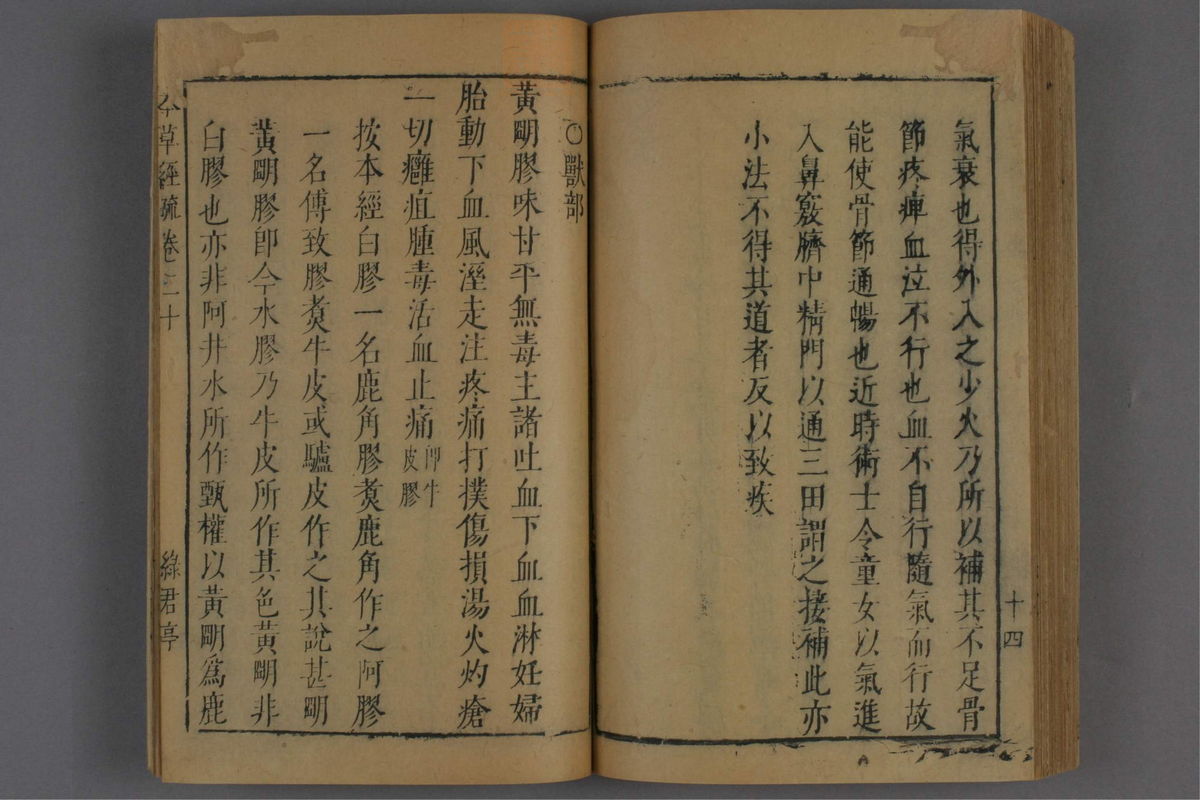 氣衰也得外入之少火乃所以補其不足骨
節疼痺血泣不行也血不自行隨氣而行故
能使骨節通暢也近時術士令童女以氣進
入鼻竅臍中精門以通三田謂之接補此亦
小法不得其道者反以致疾
十四
○獸部
黃明膠味甘平無毒主諸吐血下血血淋妊婦
胎動下血風溼走注疼痛打撲傷損湯火灼瘡
一切癰疽腫毒活血止痛卽牛皮膠
按本經白膠一名鹿角膠煑鹿角作之阿膠
一名傅致膠煑牛皮或驢皮作之其說甚明
黃明膠卽今水膠乃牛皮所作其色黃明非
白膠也亦非阿井水所作甄權以黃明爲鹿
本草經疏 卷二十 綠君亭